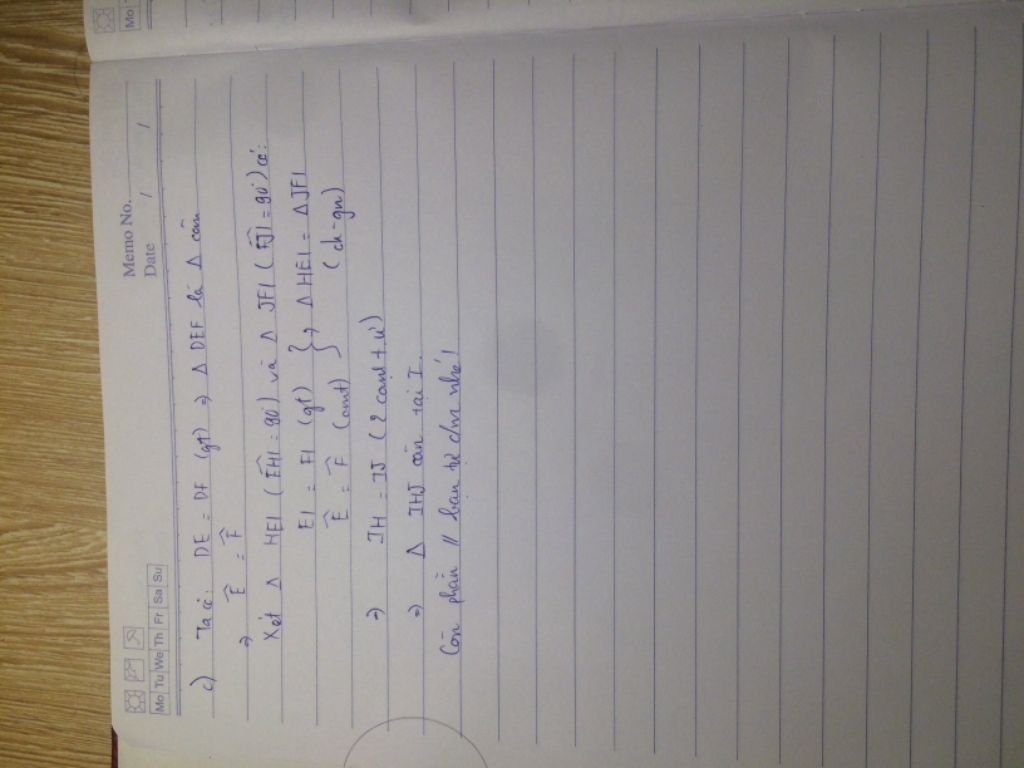 Memo No.
Mo Tu We Th Fr Sa Su
Date / /
c) Ta có: DE = DF (gt) ⇒ Δ DEF là Δ cân
⇒ Ê = F̂
Xét Δ HEI (ÊHI = 90°) và Δ JFI (F̂JI = 90°) có:
EI = FI (gt)
Ê = F̂ (cmt)
} ⇒ Δ HEI = Δ JFI
(ch-gn)
⇒ IH = IJ (2 cạnh t.ứ)
⇒ Δ IHJ cân tại I.
Còn phần // bạn tự chm nhé!
Mo